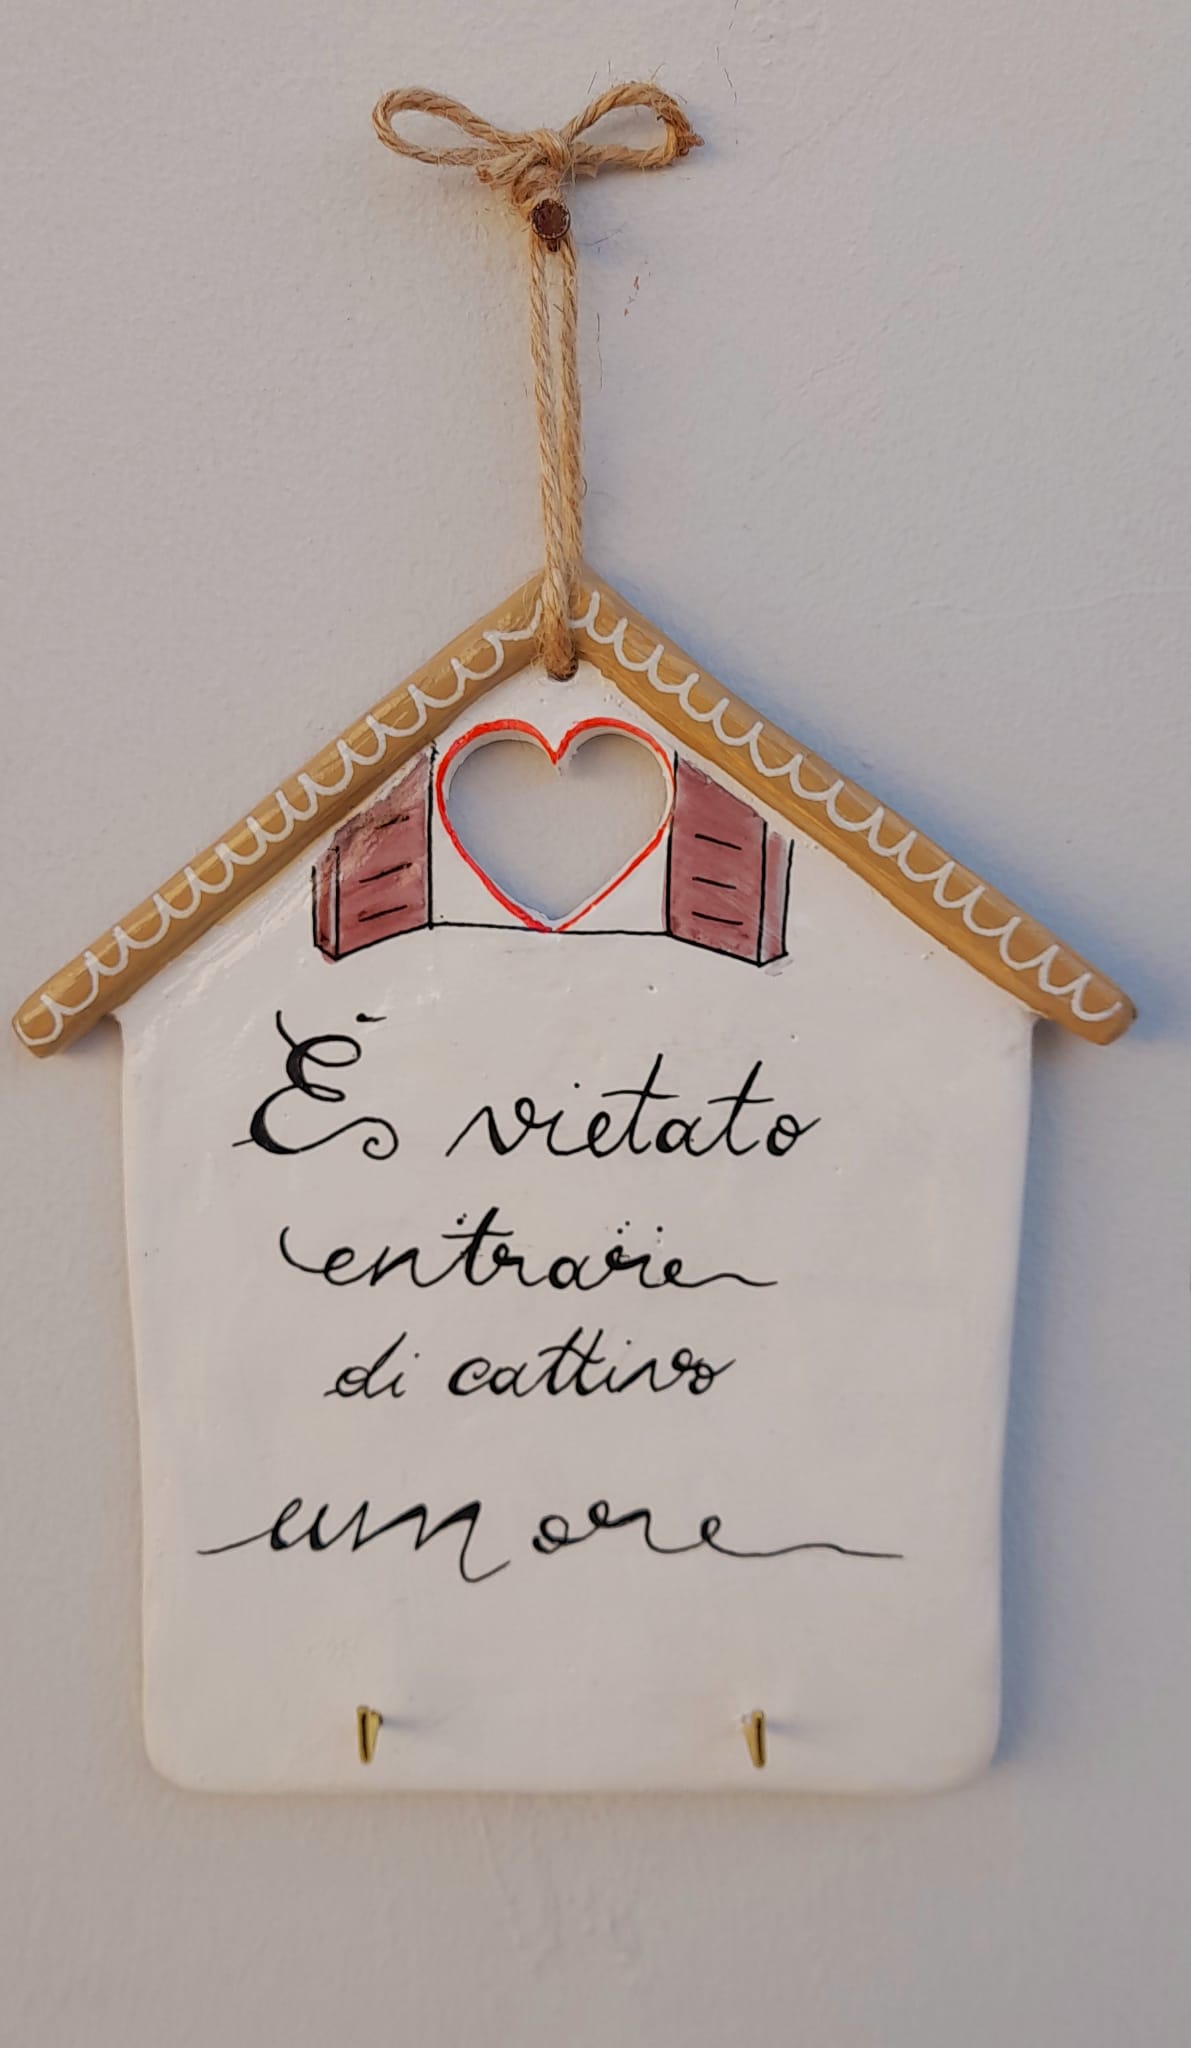 È vietato
entrare
di cattivo
umore